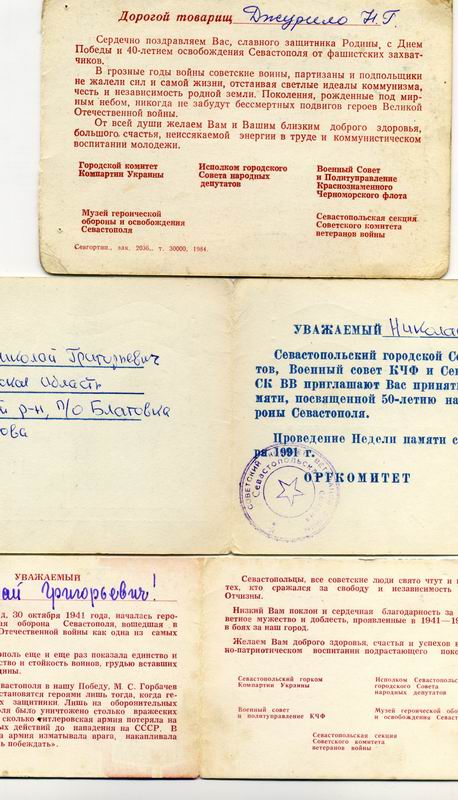 Дорогой товарищ Джурило Н.Г.
Сердечно поздравляем Вас, славного защитника Родины, с Днем
Победы и 40-летием освобождения Севастополя от фашистских захват-
чиков.
В грозные годы войны советские воины, партизаны и подпольщики
не жалели сил и самой жизни, отстаивая светлые идеалы коммунизма,
честь и независимость родной земли. Поколения, рожденные под мир-
ным небом, никогда не забудут бессмертных подвигов героев Великой
Отечественной войны.
От всей души желаем Вам и Вашим близким доброго здоровья,
большого счастья, неиссякаемой энергии в труде и коммунистическом
воспитании молодежи.
Городской комитет
Компартии Украины
Исполком городского
Совета народных
депутатов
Военный Совет
и Политуправление
Краснознаменного
Черноморского флота
Музей героической
обороны и освобождения
Севастополя
Севастопольская секция
Советского комитета
ветеранов войны
Севгортип., зак. 2036., т. 30000, 1984.
иколай Григорьевич
ская область
й р-н, п/о Благовка
ова
УВАЖАЕМЫЙ Никола
Севастопольский городской Со
тов, Военный совет КЧФ и Сев
СК ВВ приглашают Вас принять
мяти, посвященной 50-летию на
роны Севастополя.
Проведение Недели памяти с
ря 1991 г.
ОРГКОМИТЕТ
УВАЖАЕМЫЙ
ай Григорьевич!
д, 30 октября 1941 года, началась геро-
ая оборона Севастополя, вошедшая в
Отечественной войны как одна из самых
ополь еще и еще раз показала единство и
ство и стойкость воинов, грудью вставших
щины.
вастополя в нашу Победу, М. С. Горбачев
становятся героями лишь тогда, когда ге-
х защитники. Лишь на оборонительных
оля было уничтожено столько вражеских
сколько гитлеровская армия потеряла на
ных действий до нападения на СССР. В
а армия изматывала врага, накапливала
ь побеждать».
Севастопольцы, все советские люди свято чтут и п
тех, кто сражался за свободу и независимость
Отчизны.
Низкий Вам поклон и сердечная благодарность за
ветное мужество и доблесть, проявленные в 1941—19
в боях за наш город.
Желаем Вам доброго здоровья, счастья и успехов в
но-патриотическом воспитании подрастающего поко
Севастопольский горком
Компартии Украины
Исполком Севастопол
городского Совета
народных депутатов
Военный совет
и политуправление КЧФ
Музей героической об
и освобождения Севас
Севастопольская секция
Советского комитета
ветеранов войны